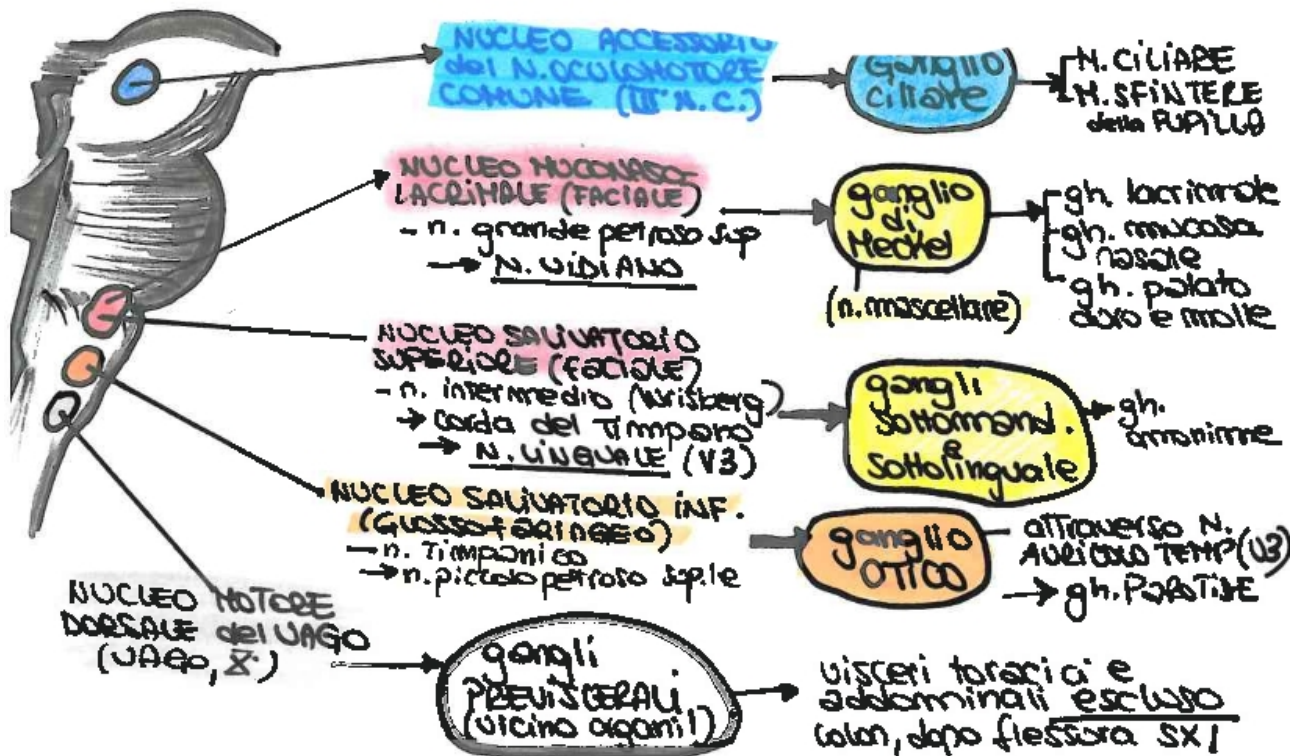 NUCLEO ACCESSORIO
del N. OCULOMOTORE
COMUNE (III° N.C.)
ganglio
ciliare
M. CILIARE
M. SFINTERE
della PUPILLA
NUCLEO MUCONASO-
LACRIMALE (FACIALE)
- n. grande petroso sup
→ N. VIDIANO
ganglio
di
Meckel
(n. mascellare)
gh. lacrimale
gh. mucosa
nasale
gh. palato
duro e molle
NUCLEO SALIVATORIO
SUPERIORE (FACIALE)
- n. intermedio (Wrisberg)
→ corda del Timpano
→ N. LINGUALE (V3)
gangli
sottomand.
e
sottolinguale
gh.
omonime
NUCLEO SALIVATORIO INF.
(GLOSSOFARINGEO)
- n. Timpanico
→ n. piccolo petroso sup.le
ganglio
OTICO
attraverso N.
AURICOLO TEMP (V3)
→ gh. PAROTIDE
NUCLEO MOTORE
DORSALE del VAGO
(VAGO, X°)
gangli
PREVISCERALI
(vicino organi!)
visceri toracici e
addominali escluso
colon, dopo flessura SX!